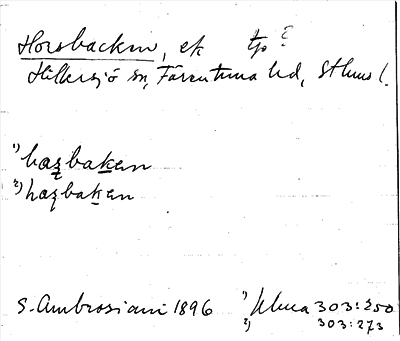 Horsbacken, ek tp ?
Hillersjö sn, Färentuna hd, Sthms l.
1) hazbaken
2) hazbaken
S. Ambrosiani 1896 1) 303:250
2) 303:273